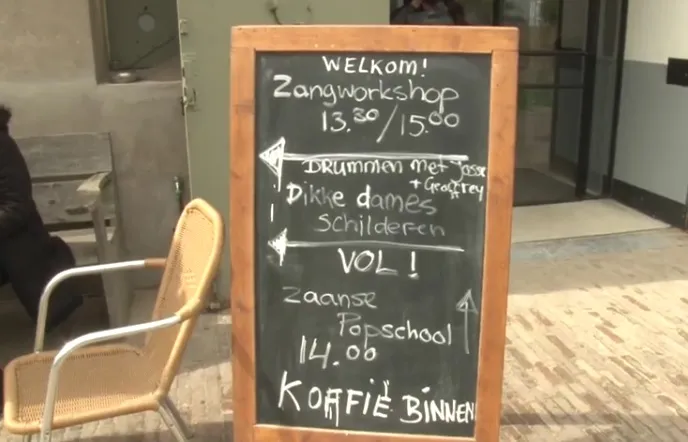 WELKOM!
Zangworkshop
13.30/15.00
DRUMMEN met Josse
+ Geoffrey
Dikke dames
SCHILDEREN
VOL!
Zaanse
Popschool
14.00
KOFFIE BINNEN